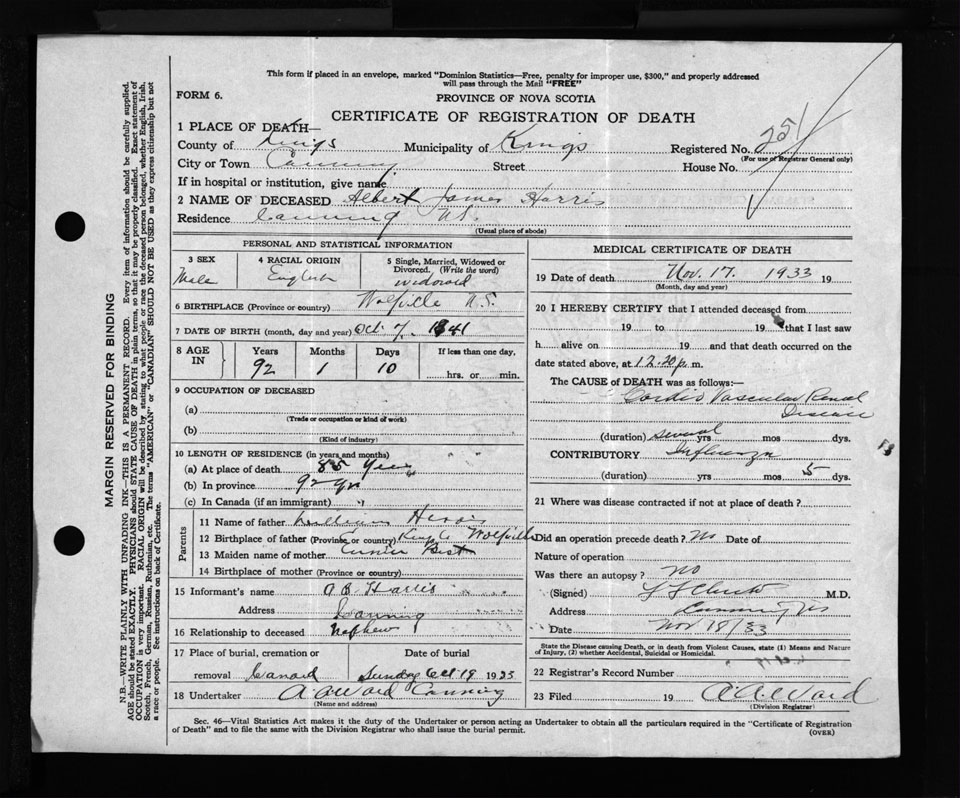 This form if placed in an envelope, marked "Dominion Statistics—Free, penalty for improper use, $300," and properly addressed
will pass through the Mail "FREE"
FORM 6.
PROVINCE OF NOVA SCOTIA
CERTIFICATE OF REGISTRATION OF DEATH
1 PLACE OF DEATH—
County of Kings Municipality of Kings Registered No. 251
(For use of Registrar General only)
City or Town Canning Street House No.
If in hospital or institution, give name
2 NAME OF DECEASED Albert James Harris
Residence Canning N.S.
(Usual place of abode)
PERSONAL AND STATISTICAL INFORMATION
3 SEX Male
4 RACIAL ORIGIN English
5 Single, Married, Widowed or Divorced. (Write the word) widowed
6 BIRTHPLACE (Province or country) Wolfville N.S.
7 DATE OF BIRTH (month, day and year) Oct 7, 1841
8 AGE IN Years 92 Months 1 Days 10 If less than one day, hrs. or min.
9 OCCUPATION OF DECEASED
(a)
(Trade or occupation or kind of work)
(b)
(Kind of industry)
10 LENGTH OF RESIDENCE (in years and months)
(a) At place of death 85 years
(b) In province 92 yrs
(c) In Canada (if an immigrant) "
Parents
11 Name of father William Harris
12 Birthplace of father (Province, or country) Kings Co Wolfville
13 Maiden name of mother Best
14 Birthplace of mother (Province or country)
15 Informant's name A B Harris
Address Canning
16 Relationship to deceased Nephew
17 Place of burial, cremation or removal Canard
Date of burial Sunday Oct 19 1933
18 Undertaker A A Ward Canning
(Name and address)
MEDICAL CERTIFICATE OF DEATH
19 Date of death Nov. 17. 1933 19
(Month, day and year)
20 I HEREBY CERTIFY that I attended deceased from
19 to 19 that I last saw
h alive on 19 and that death occurred on the
date stated above, at 12.20 p. m.
The CAUSE of DEATH was as follows:—
Cardio Vascular Renal
Disease
(duration) several yrs mos dys.
CONTRIBUTORY Influenza
(duration) yrs mos 5 dys.
21 Where was disease contracted if not at place of death?
Did an operation precede death? No Date of
Nature of operation
Was there an autopsy? no
(Signed) M.D.
Address Canning NS
Date Nov 18/33
State the Disease causing Death, or in death from Violent Causes, state (1) Means and Nature
of Injury, (2) whether Accidental, Suicidal or Homicidal.
22 Registrar's Record Number
23 Filed 19 A A Ward
(Division Registrar)
Sec. 46—Vital Statistics Act makes it the duty of the Undertaker or person acting as Undertaker to obtain all the particulars required in the "Certificate of Registration
of Death" and to file the same with the Division Registrar who shall issue the burial permit.
(OVER)
MARGIN RESERVED FOR BINDING
N.B.—WRITE PLAINLY WITH UNFADING INK—THIS IS A PERMANENT RECORD. Every item of information should be carefully supplied.
AGE should be stated EXACTLY. PHYSICIANS should STATE CAUSE OF DEATH in plain terms, so that it may be properly classified. Exact statement of
OCCUPATION is very important. RACIAL ORIGIN will be described by stating to what people or race the deceased person belonged, whether English, Irish,
Scotch, French, German, Russian, Ruthenian, etc. The terms "AMERICAN" or "CANADIAN" SHOULD NOT BE USED as they express citizenship but not
a race or people. See instructions on back of Certificate.